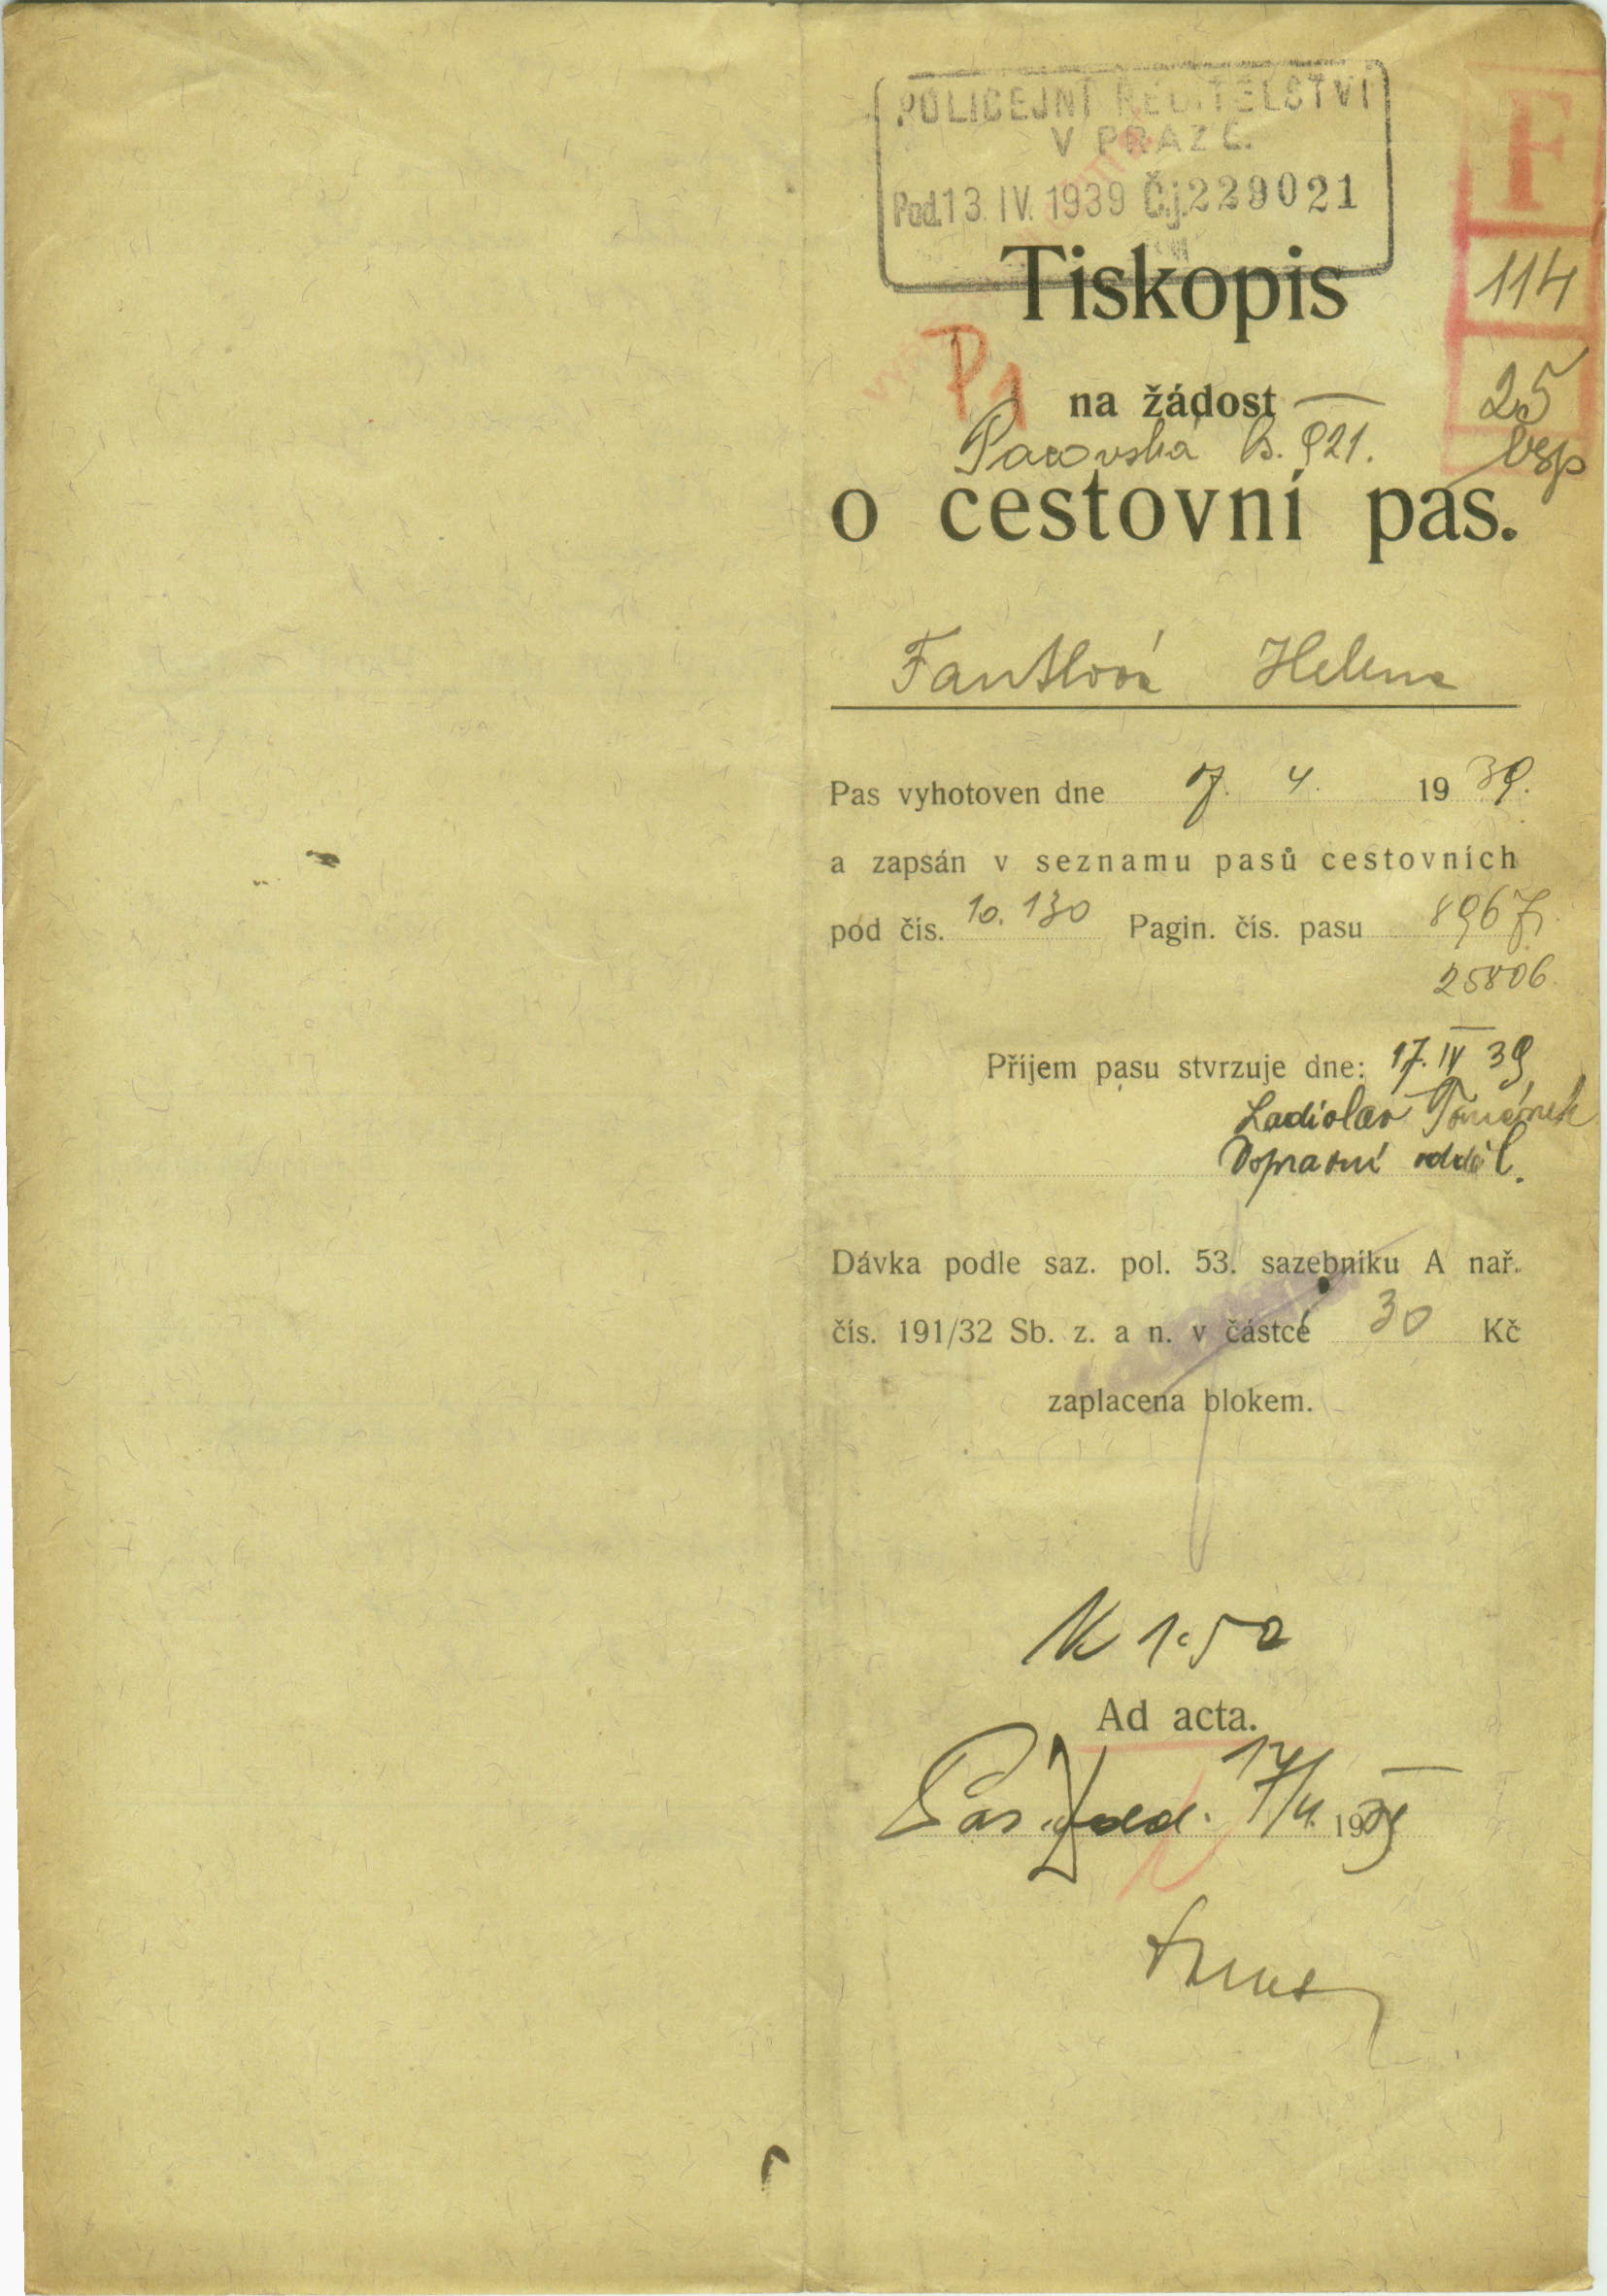 POLICEJNÍ ŘEDITELSTVÍ
V PRAZE.
Pod. 13. IV. 1939 Č.j. 229021
F
114
25
Tiskopis
P1
na žádost
Pacovská 921.
o cestovní pas.
Fantlová Helena
Pas vyhotoven dne 4. 1939.
a zapsán v seznamu pasů cestovních
pod čís. 10.130 Pagin. čís. pasu 8967
25806.
Příjem pasu stvrzuje dne: 17. IV 39
Ladislav Tománek
Dopravní odděl.
Dávka podle saz. pol. 53. sazebníku A nař.
čís. 191/32 Sb. z. a n. v částce 30 Kč
zaplacena blokem.
K 1.50
Ad acta.
17/4. 1939